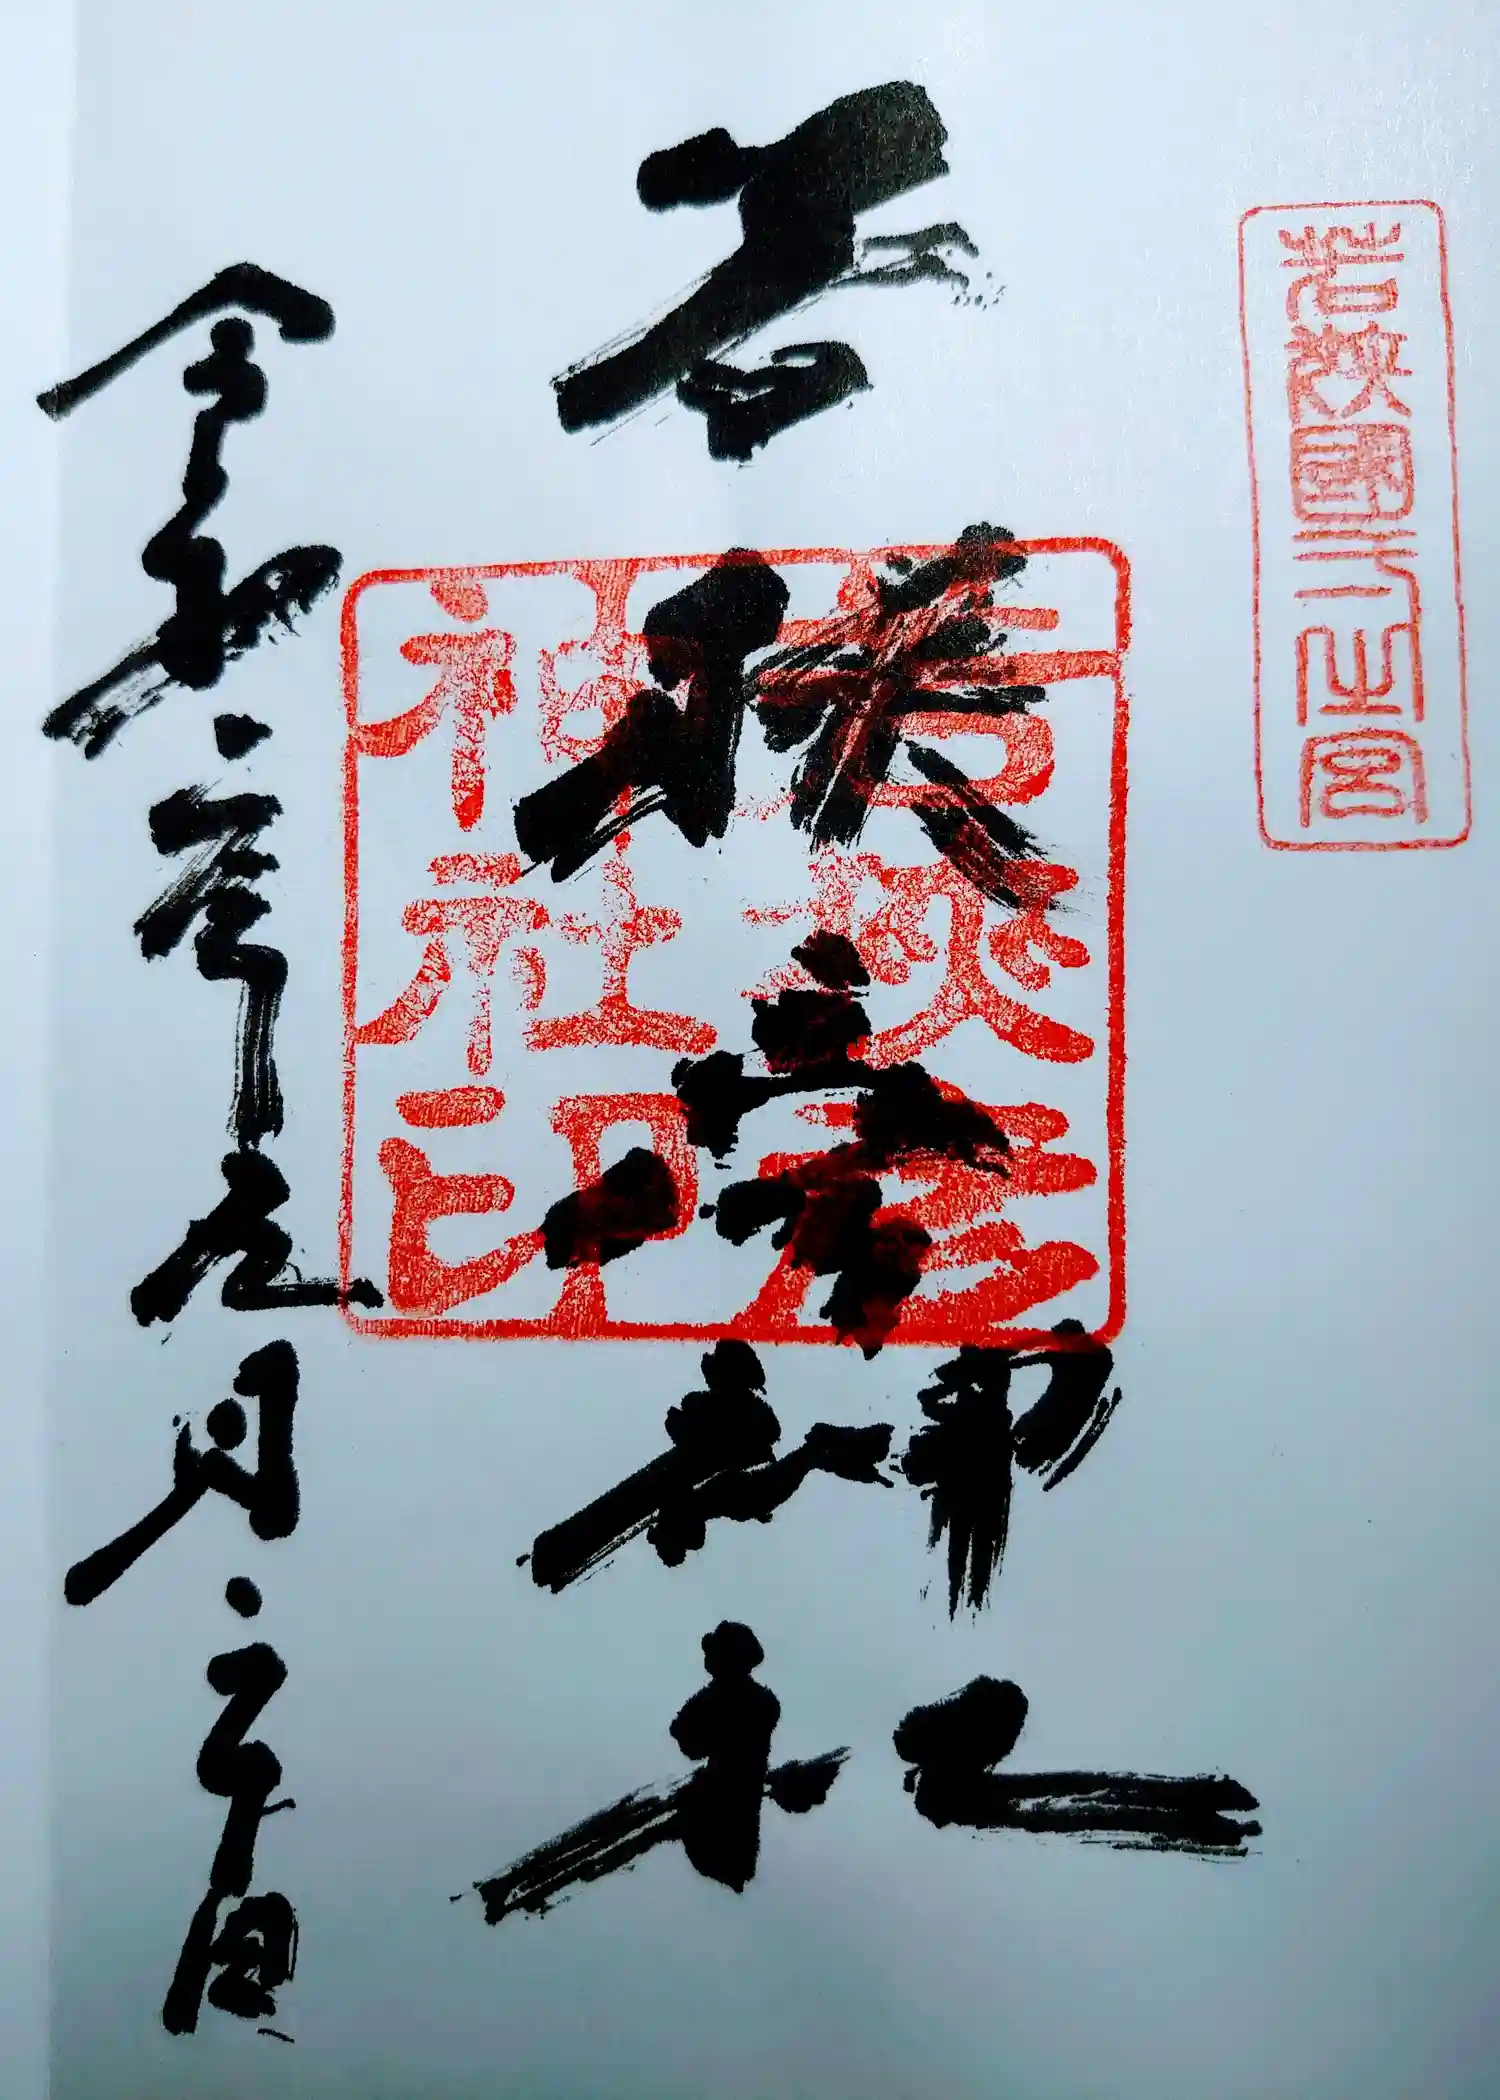 若狭國一之宮
若狭彦神社
若狭彦神社印
令和 年九月